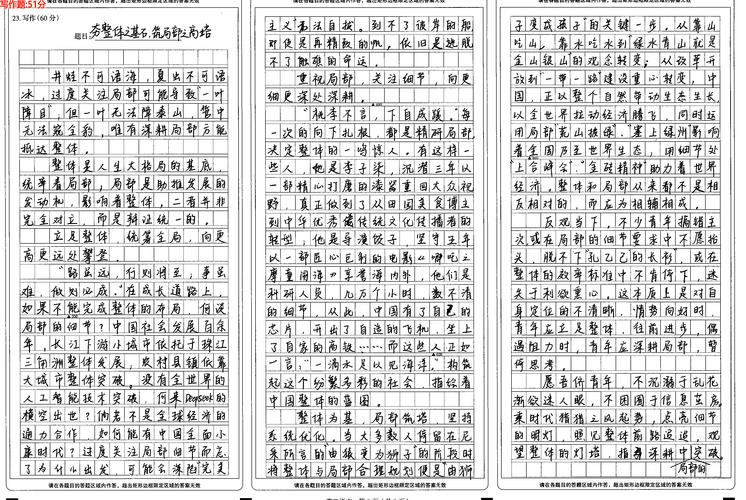 写作题:51分
请在各题目的答题区域内作答，超出矩形边框限定区域的答案无效
23.写作(60分)
题目 夯整体之基石,筑局部之高塔
井蛙不可语海,夏虫不可语
冰,过度关注局部可能导致"一叶
障目",但一叶无法障泰山,管中
无法窥全豹,唯有深耕局部方能
抵达整体。
整体是人生大格局的基底,
统率着局部,局部是助推发展的
发动机,影响着整体,二者并非
完全对立,而是辩证统一的。
立足整体,统筹全局,向更
高更远处攀登。
"路虽远,行则将至,事虽
难,做则必成。"在成长道路上,
如果不能完成整体的布局,何谈
局部的细节?中国社会发展百余
年,长江下游小城市依托于珠江
三角洲整体发展,农村县镇依靠
大城市整体突破。没有全世界的
人工智能技术突破,何来DeepSeek的
横空出世?倘若不是全球经济的
通力合作,如何能有中国全面小
康时代?过度关注局部细节而忘
了为什么出发,可能会深陷完美
请在各题目的答题区域内作答，超出矩形边框限定区域的答案无效
请在各题目的答题区域内作答，超出矩形边框限定区域的答案无效
主义,无法自拔。到不了彼岸的船
即使是再精致的帆,依旧是逃脱
不了触礁的命运。
重视局部,关注细节,向更
细更深处深耕。
"桃李不言,下自成蹊。"每
一次的向下扎根,都是精研局部
决定整体的一鸣惊人。有这样一
些人,他是李子柒,沉潜三年以
一部精心打磨的漆器重回大众视
野,真正做到了从田园美食博主
到中华优秀传统文化传播者的
转型,他是导演饺子,坚守五年
以一部匠心巨制的电影《哪吒之
魔童闹海》享誉海内外,他们是
科研人员,几万个小时,数不清
的细节,从此,中国有了自己的
芯片,开出了自造的飞机,坐上
了自家的高铁……而这些人正如
一言:"一滴水足以见海洋。"构筑
起这个纷繁多彩的社会,描绘着
中国整体的蓝图。
整体为基,局部筑塔,坚持
系统优化。当大多数人停留在尼
采所言的"由骆驼变为狮子"的阶段时
将整体与局部合理规划便是由"狮
请在各题目的答题区域内作答，超出矩形边框限定区域的答案无效
请在各题目的答题区域内作答，超出矩形边框限定区域的答案无效
子变成孩子"的关键一步。从靠山
吃山,靠水吃水到"绿水青山就是
金山银山"的观念转变;从改革开
放到"一带一路"建设重心转变,中
国,正以整个自然带动生态生长,
以全世界拉动经济腾飞,同时运
用局部荒山披绿","塞上绿洲"影响
着全国乃至世界生态,用细节处
"上合峰会""金砖精神"助力着世界
经济。整体和局部从来都不是相
反相对的,而应为相辅相成。
反观当下,不少青年搞错主
次或在局部的细节要求中不愿抬
头,脱不下"孔乙己的长衫",或在
整体的效率标准中不肯俯下,迷
失于利欲熏心。这本质上是对自
身定位的不清晰,情势向好时,
青年应立足整体,往前进步,偶
遇阻力时,青年应深耕局部,磐
何思考。
愿吾侪青年,不沉溺于乱花
渐欲迷人眼,不困囿于信息茧房,
乘时代猎猎之风起势,点亮细节
的明灯,照见整体前路迢迢,观
望整体的灯塔,指尊深耕中突破。
局部的
请在各题目的答题区域内作答，超出矩形边框限定区域的答案无效